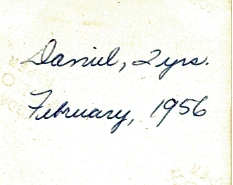 Daniel, 2 yrs.
February, 1956